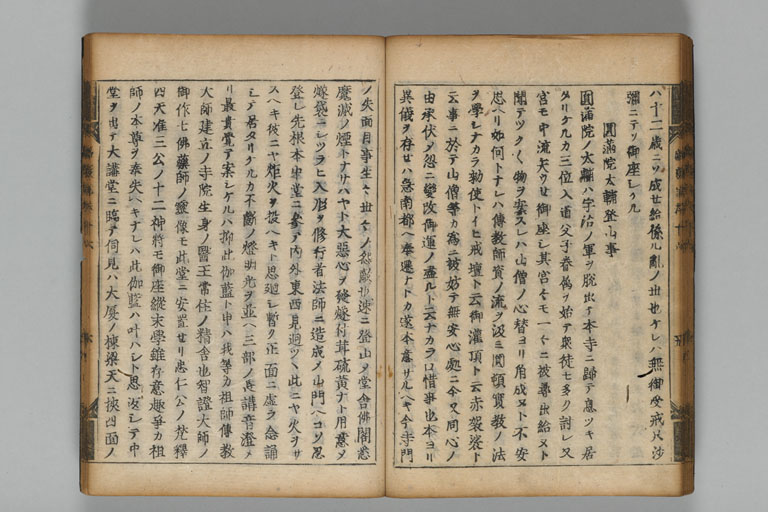 ハ十二歳ニソ成セ給係ル亂ノ出也ケレハ無御受戒只沙
彌ニテソ御座シケル
圓滿院大輔登山事
圓滿院ノ大輔ハ宇治ノ軍ヲ脱出テ本寺ニ歸テ息ツキ居
タリケルカ三位入道父子眷屬ヲ始テ衆徒モ多ク討レ又
宮モ中流矢ウセ御座シ其宮々モ一々ニ被尋出給ヌト
聞テツク〱物ヲ案スレハ山僧ノ心替ヨリ角成ヌト不安
思ヘリ如何トナレハ傳教師資ノ流ヲ汲ミ圓頓實教ノ法
ヲ學シナカラ勅使トイヒ戒壇ト云御灌頂ト云赤袈裟ト
云事ニ於テ山僧等カ爲ニ被妨テ無安心處ニ今又同心ノ
由承伏ノ忽ニ變改御運ノ盡ルト云ナカラ口惜事也本ヨリ
異儀ヲ存セハ急南都ヘ奉遷ナトカ遂本意サルヘキ今寺門
ノ失面目事生々世々ノ怨敵也速ニ登山ノ堂舎佛閣悉
魔滅ノ煙トナサハヤト大惡心ヲ發燧付茸硫黄ナト用意メ
燧袋ニシツラヒ入形ヲ修行者法師ニ造成メ山門ヘコソ忍
登レ先根本中堂ニ參テ内外東西見廻ツヽ此ニヤ火ヲサ
スヘキ彼ニヤ炬火ヲ投ヘキト思廻シ暫ク正面ニ虚ラ念誦
シテ居タリケルカ不斷ノ燈明光ヲ並ヘ三部ノ長講音澄メ
リ最貴覺テ案シケルハ抑此伽藍ト申ハ我等カ祖師傳教
大師建立ノ寺院生身ノ醫王常住ノ精舎也智證大師ノ
御作七佛藥師ノ靈像モ此堂ニ安置セリ忠仁公ノ梵釋
四天准三公ノ十二神將モ御座縱末學雖存意趣爭カ祖
師ノ本尊ヲ奉失ヘキナレハ此伽藍ハ叶ハシト思返シテ中
堂ヲ出テ大講堂ニ臨テ伺見ハ大厦ノ棟梁天ニ挾四面ノ